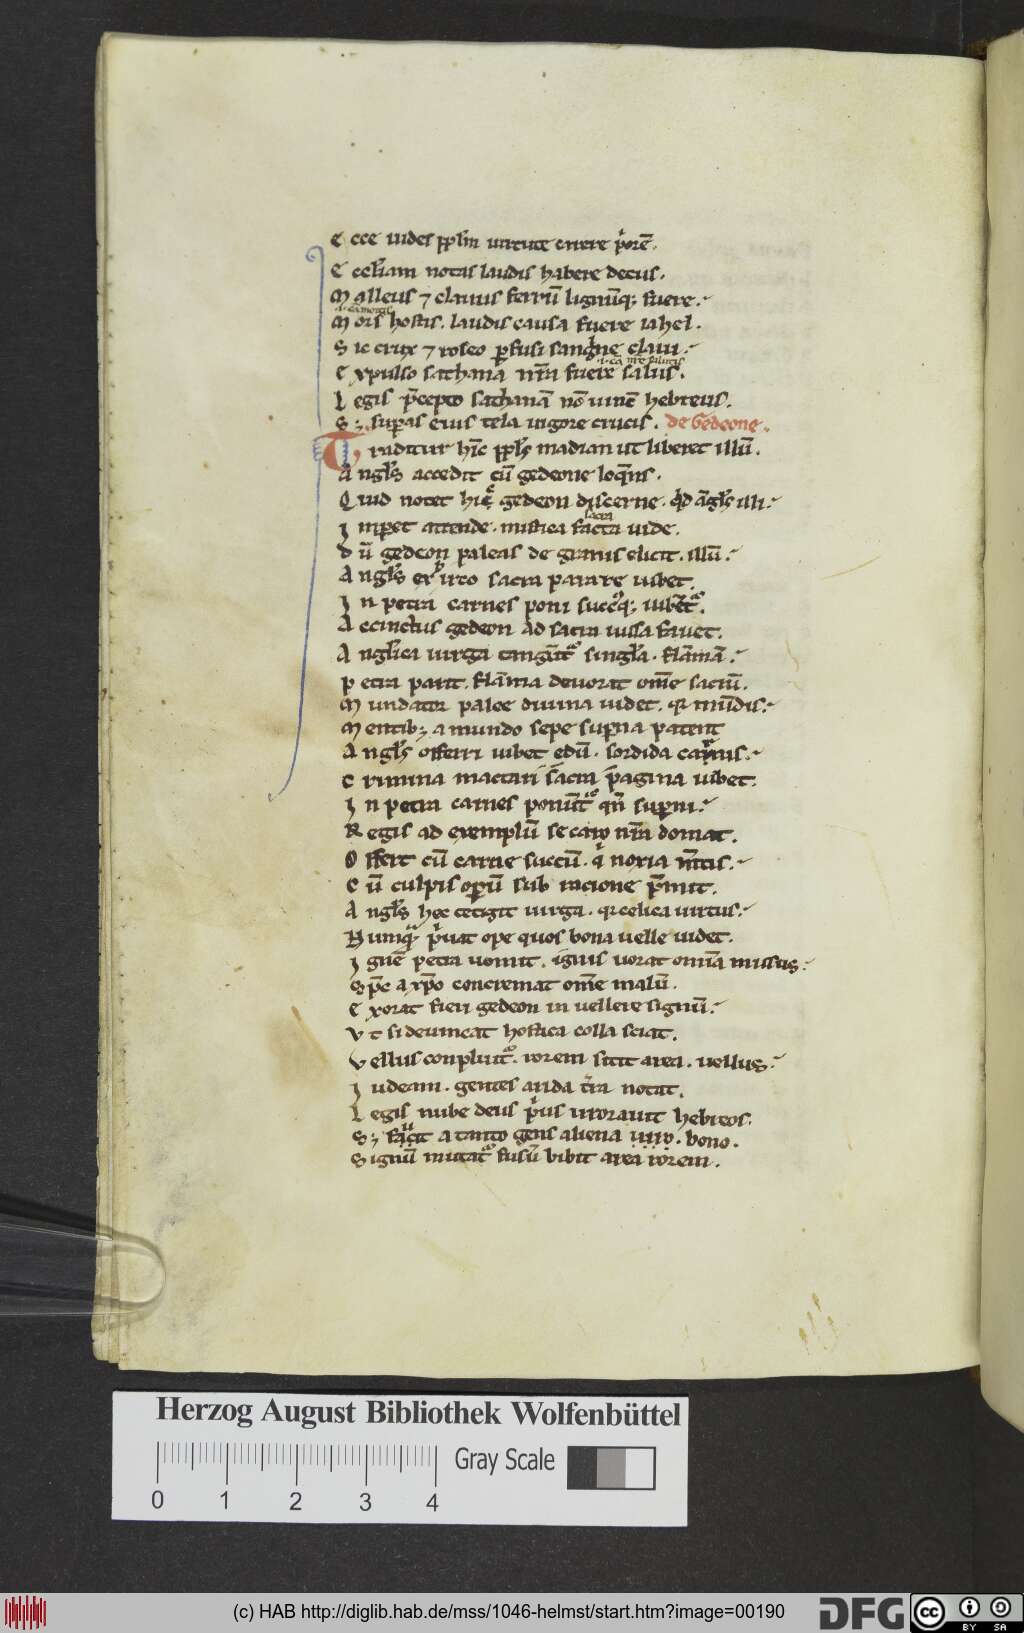 E cce uides pplm uirtute cruere priorē.
E ccl'iam notas laudis habere decus.
M alleus ⁊ clauus ferrū lignūq; fuere.
M ors hostis. laudis causa fuere iahel.
S ic crux ⁊ roseo pfusi sanguīe claui.
E xpulso sathana nr̄m fuere salus.
L egis p̄cepto sathanā nō uincē hebreus.
S ; supas eius tela uigore crucis. de Gedeone.
T raditur hīc ppl's madian ut liberet illū.
A ngl's accedit cū gedeone loq̄ns.
Q uid notet hic gedeon discerne. qd angl's illi.
I npet attende. mistica facta uide.
sacra
D ū gedeon paleas de granis elicit. illū.
A ngl's ex irco sacra parare iubet.
I n petra carnes poni succq; iubet.
A ccinctus gedeon ad sacra iussa fauet.
A ngl'ica uirga tangūt singl'a. flāmā.
P etra parit. flāma deuorat om̄e sacrū.
M undator palee diuina uidet. qr mūdis.
M entib; a mundo sepe supna patent
A ngl's offerri iubet edū. sordida carnis.
C rimina mactari sacra pagina iubet.
I n petra carnes ponūt qn̄ supni.
R egis ad exemplū se caro nr̄a domat.
O ffert cū carne succū. q noxia mētis.
C ū culpis opum sub racione p̄mit.
A ngl's hec tetigit uirga. qr celica uirtus.
N umq; p̄uat ope quos bona uelle uidet.
I gnē petra uomit. ignis uorat omīa missus.
S pc a xp̄o concremat om̄e malū.
E xorat fieri gedeon in uellere signū.
V t si deuincat hostica colla sciat.
V ellus conpluit. rorem sitit area. uellus.
I udeam. gentes arida t'ra notat.
L egis nube deus p'us irrorauit hebreos.
S ; facit a tanto gens aliena bono.
S ignū mutat fusū bibit area rorem.
Herzog August Bibliothek Wolfenbüttel
Gray Scale
0 1 2 3 4
(c) HAB http://diglib.hab.de/mss/1046-helmst/start.htm?image=00190
DFG
cc BY SA